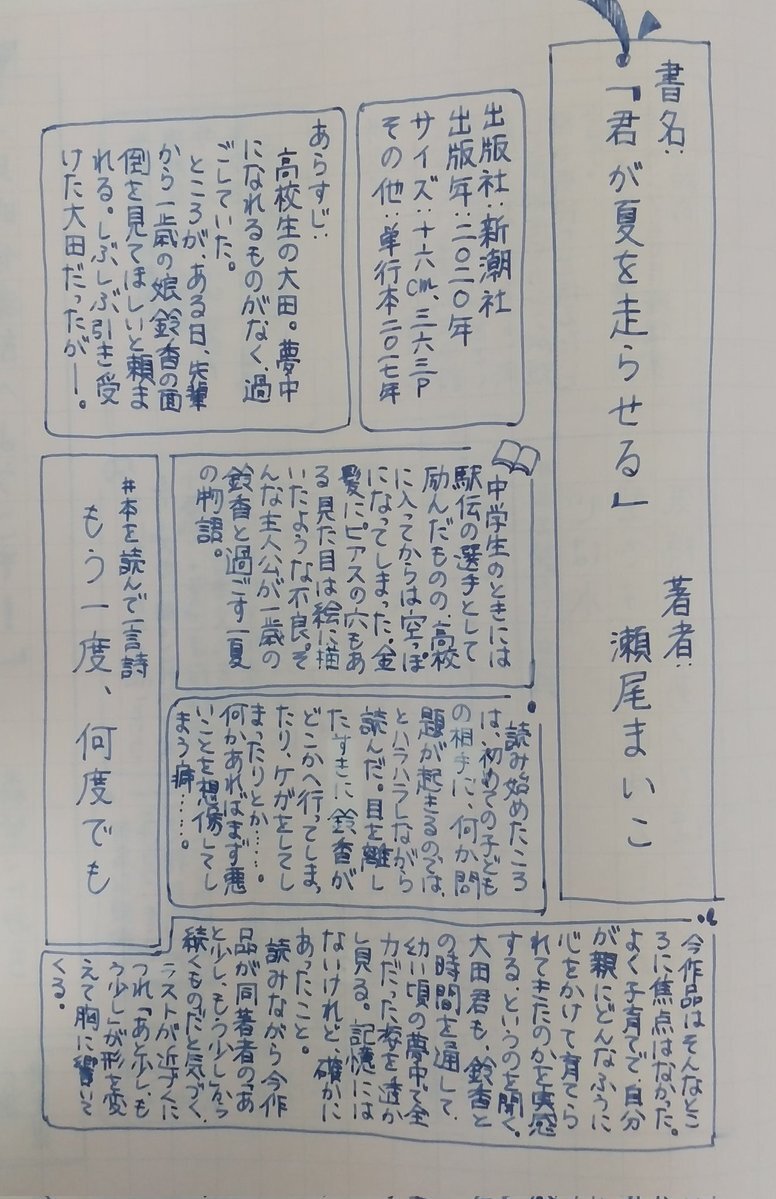 書名:
「君が夏を走らせる」
著者:
瀬尾まいこ
出版社:新潮社
出版年:二〇二〇年
サイズ:十六cm、三六三P
その他:単行本二〇一七年
あらすじ:
高校生の大田。夢中
になれるものがなく、過
ごしていた。
ところが、ある日、先輩
から一歳の娘、鈴香の面
倒を見てほしいと頼ま
れる。しぶしぶ引き受
けた大田だったが―。
中学生のときには
駅伝の選手として
励んだものの、高校
に入ってからは空っぽ
になってしまった。金
髪にピアスの穴もあ
る見た目は絵に描
いたような不良。そ
んな主人公が一歳の
鈴香と過ごす一夏
の物語。
#本を読んで一言詩
もう一度、何度でも
読み始めたころ
は、初めての子ども
の相手に、何か問
題が起きるのでは、
とハラハラしながら
読んだ。目を離し
たすきに、鈴香が
どこかへ行ってしまっ
たり、ケガをしてし
まったりとか……。
何かあればまず悪
いことを想像してし
まう癖……。
今作品はそんなとこ
ろに焦点はなかった。
よく子育てで、自分
が親にどんなふうに
心をかけて育てら
れてきたのかを実感
する、というのを聞く。
大田君も、鈴香と
の時間を通して、
幼い頃の夢中で全
力だった姿を透か
し見る。記憶には
ないけれど、確かに
あったこと。
読みながら、今作
品が同著者の、「あ
と少し、もう少し」から
続くものだと気づく。
ラストが近づくに
つれ「あと少し、も
う少し」が形を変
えて胸に響いて
くる。